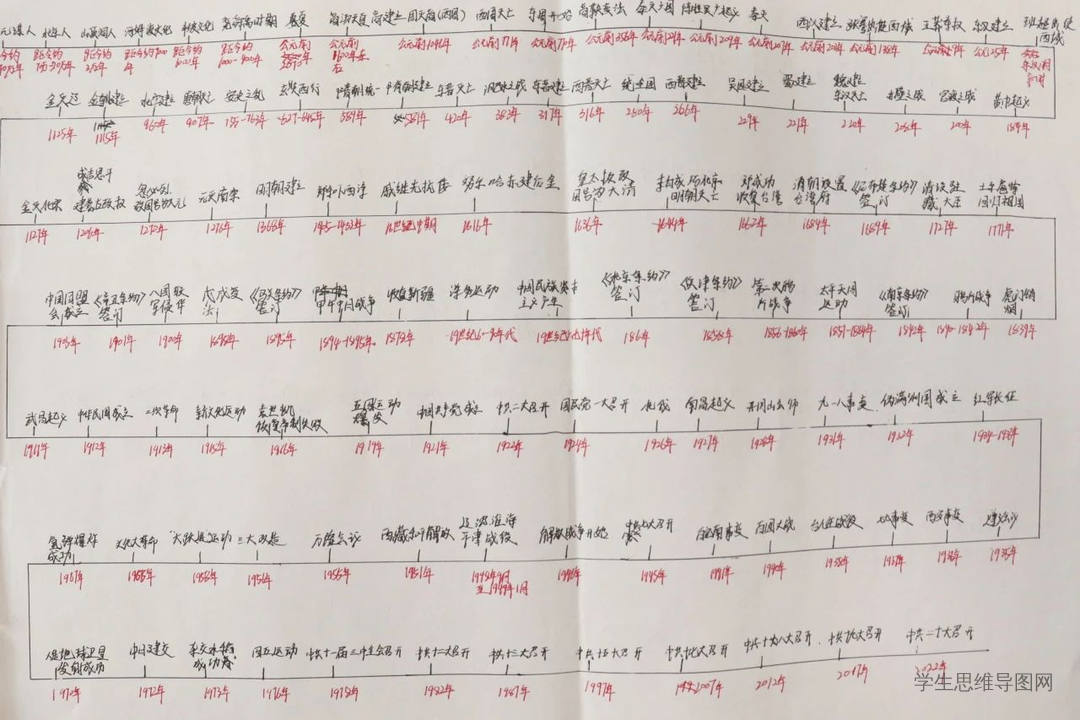 元谋人 北京人 山顶洞人 河姆渡文化 半坡文化
商汤灭夏 商建立 周灭商(西周) 西周灭亡 商鞅变法 秦灭六国 秦亡 西汉建立 张骞出使西域 王莽夺权 东汉建立 班超出使西域
公元前1046年 公元前771年 公元前770年 公元前356年 公元前209年 公元前207年 公元前202年 公元前138年 公元9年 公元25年
金灭辽 金朝建立 北宋建立 唐朝灭亡 安史之乱 玄奘西行 隋朝统一 隋朝建立 东晋灭亡 淝水之战 东晋建立 西晋灭亡 统一全国 西晋建立 吴国建立 蜀建立 魏建立 东汉灭亡 赤壁之战 官渡之战 黄巾起义
1125年 1115年 960年 907年 755-763年 627-645年 589年 581年 420年 383年 317年 316年 280年 266年 229年 221年 220年 208年 200年 184年
金灭北宋 成吉思汗建蒙古政权 忽必烈改国号为元 元灭南宋 明朝建立 郑和下西洋 戚继光抗倭 努尔哈赤建后金 皇太极改国号为大清 李自成攻占北京 明朝灭亡 郑成功收复台湾 清朝设置台湾府 《尼布楚条约》签订 清设驻藏大臣 土尔扈特回归祖国
1127年 1206年 1276年 1368年 1405-1433年 16世纪中期 1616年 1636年 1644年 1662年 1684年 1689年 1727年 1771年
中国同盟会成立 《辛丑条约》签订 八国联军侵华 戊戌变法 《马关条约》签订 甲午中日战争 收复新疆 洋务运动 中国民族资本主义产生 《北京条约》签订 《天津条约》签订 第二次鸦片战争 太平天国运动 《南京条约》签订 鸦片战争 虎门销烟
1905年 1901年 1900年 1898年 1895年 1894-1895年 1878年 19世纪60-90年代 1860年 1858年 1856-1860年 1851-1864年 1842年 1840-1842年 1839年
武昌起义 中华民国成立 二次革命 新文化运动 袁世凯恢复帝制失败 五四运动爆发 中国共产党成立 中共二大召开 国民党一大召开 北伐 南昌起义 井冈山会师 九一八事变 伪满洲国成立 红军长征
1911年 1912年 1913年 1915年 1916年 1919年 1921年 1922年 1924年 1926年 1927年 1928年 1931年 1932年 1934-1936年
氢弹爆炸成功 文化大革命 "大跃进运动" 三大改造 万隆会议 西藏和平解放 辽沈淮海平津战役 解放战争开始 中共七大召开 皖南事变 百团大战 台儿庄战役 七七事变 西安事变 遵义会议
1967年 1966年 1958年 1956年 1955年 1951年 1948年9月至1949年1月 1946年 1945年 1941年 1940年 1938年 1937年 1936年 1935年
人造地球卫星发射成功 中日建交 杂交水稻成功 四五运动 中共十一届三中全会召开 中共十二大召开 中共十三大召开 中共十五大召开 中共十七大召开 中共十八大召开 中共十九大召开 中共二十大召开
1970年 1972年 1973年 1976年 1978年 1982年 1987年 1997年 2007年 2012年 2017年 2022年
学生思维导图网